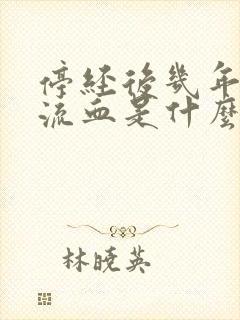 停經後幾年
流血是什麼
林曉英